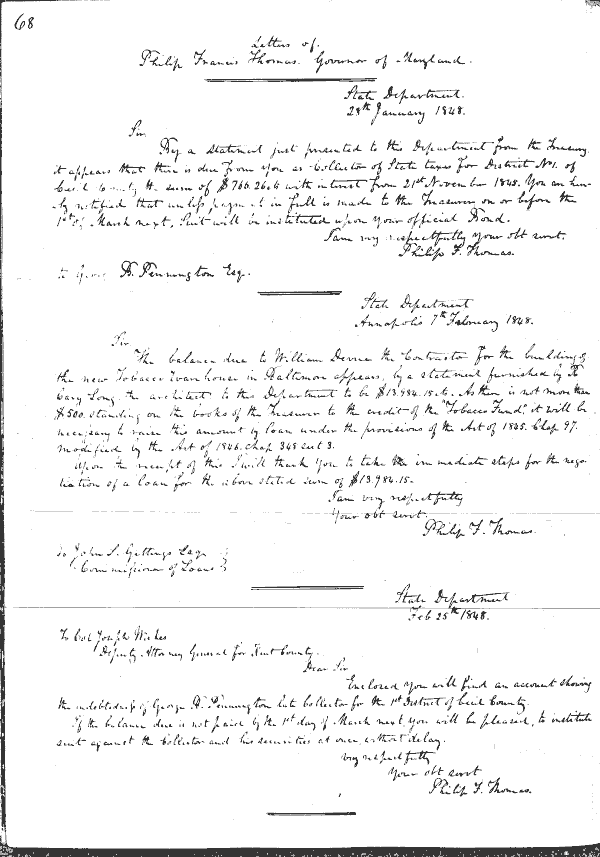 68
Letters of
Philip Francis Thomas. Governor of Maryland.
State Department.
28th January 1848.
Sir,
By a statement just presented to this Department from the Treasury
it appears that there is due from you as Collector of State taxes for District No 1. of
Cecil County the sum of $766.26 with interest from 21st November 1845. You are here-
by notified that unless payment in full is made to the Treasurer on or before the
1st of March next, Suit will be instituted upon your official Bond.
I am very respectfully your obt servt.
Philip F. Thomas.
to George Pennington Esq.
State Department
Annapolis 7th February 1848.
Sir
The balance due to William the Contractor for the building of
the new Tobacco Warehouse in Baltimore appears, by a statement furnished by R
Cary Long, the architect to this Department to be $13.984.15. As there is not more than
$500. standing on the books of the Treasurer to the credit of the "Tobacco Fund" it will be
necessary to raise this amount by loan under the provisions of the Act of 1845. Chap 97.
modified by the Act of 1846. chap 345 sect 3.
Upon the receipt of this I will thank you to take the immediate steps for the nego-
tiation of a loan for the above stated sum of $13.984.15.
I am very respectfully
Your obt servt.
Philip F. Thomas.
To John S. Gittings Esqr
Commissioner of Loans
State Department
Feb 25th 1848.
To Col Joseph Wickes
Deputy Attorney General for Kent County.
Dear Sir
Enclosed you will find an account showing
the indebtedness of George Pennington late Collector for the 1st District of Cecil County.
If the balance due is not paid by the 1st day of March next, you will be pleased, to institute
suit against the Collector and his securities at once, without delay.
very respectfully
Your obt servt
Philip F. Thomas.